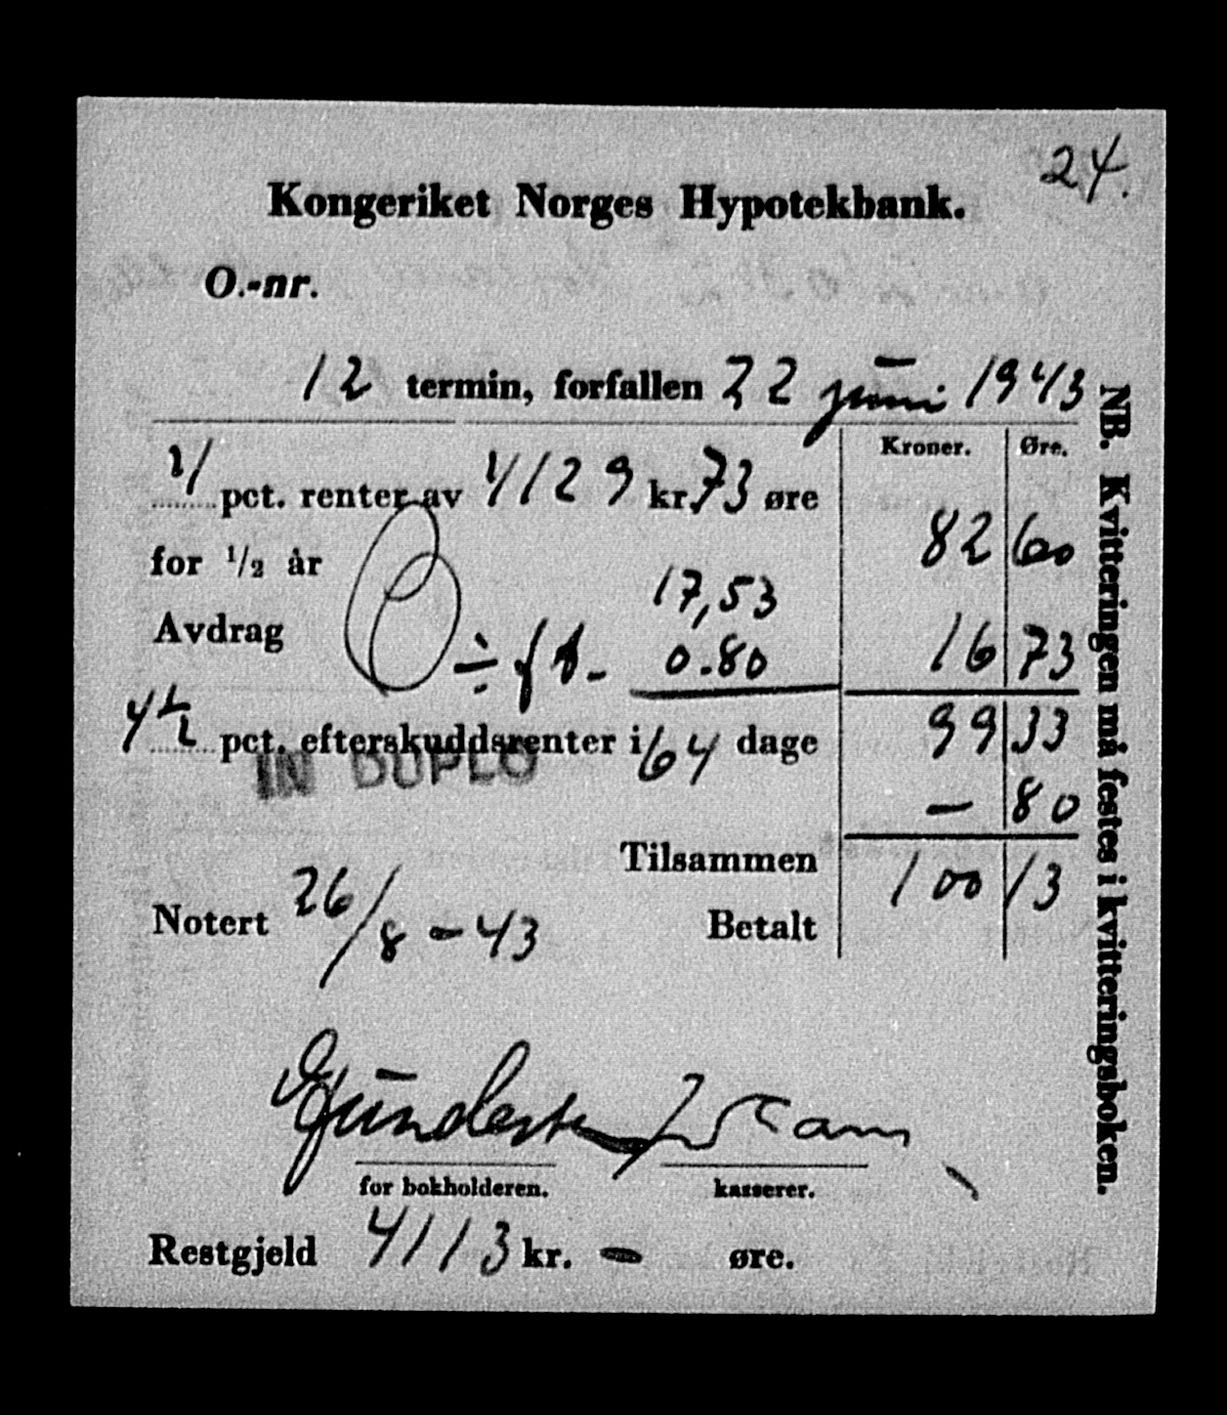 24.
Kongeriket Norges Hypotekbank.
O.-nr.
12 termin, forfallen 22 juni 1943
Kroner. Øre.
4 pct. renter av 4129 kr. 73 øre
82 60
for 1/2 år
17,53
Avdrag ÷ 0.80 16 73
4 1/2 pct. efterskuddsrenter i 64 dage 99 33
IN DUPLO
- 80
Tilsammen 100 13
Notert 26/8-43 Betalt
for bokholderen. kasserer.
Restgjeld 4113 kr. - øre.
NB. Kvitteringen må festes i kvitteringsboken.